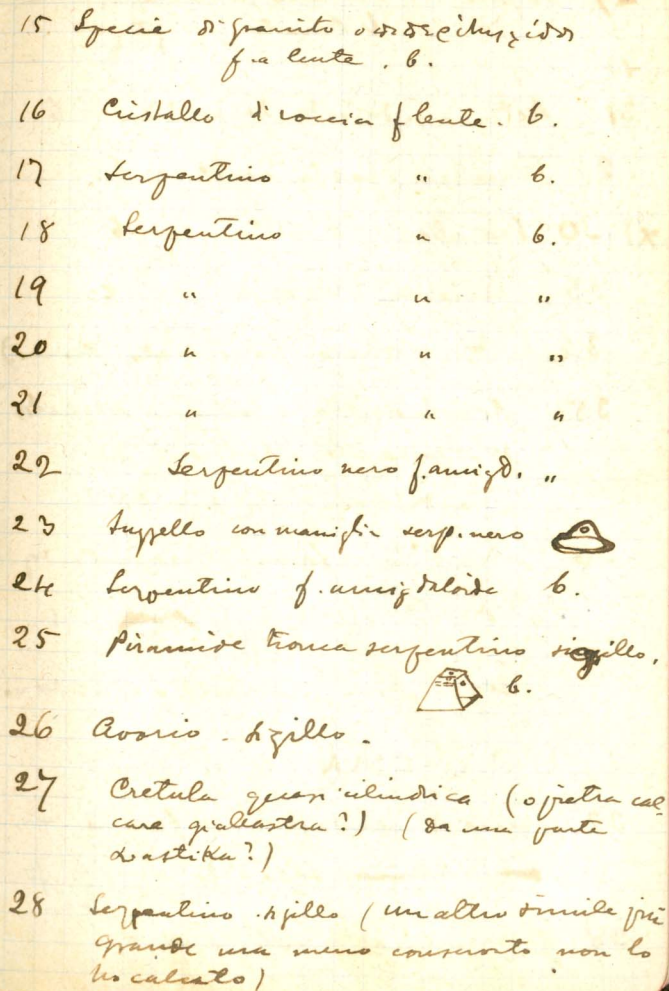 15 Specie di granito o
f. a lente. b.
16 Cristallo di roccia f lente. b.
17 Serpentino " b.
18 Serpentino " b.
19 " " "
20 " " "
21 " " "
22 Serpentino nero f. amigd. "
23 Suggello con maniglia serp. nero
24 Serpentino f. amigdaloide b.
25 Piramide tronca serpentino sigillo.
b.
26 Avorio - sigillo.
27 Cretula quasi cilindrica (o pietra cal-
care giallastra?) (da una parte
svastika?)
28 Serpentino sigillo (un altro simile più
grande ma meno conservato non lo
ho calcato)